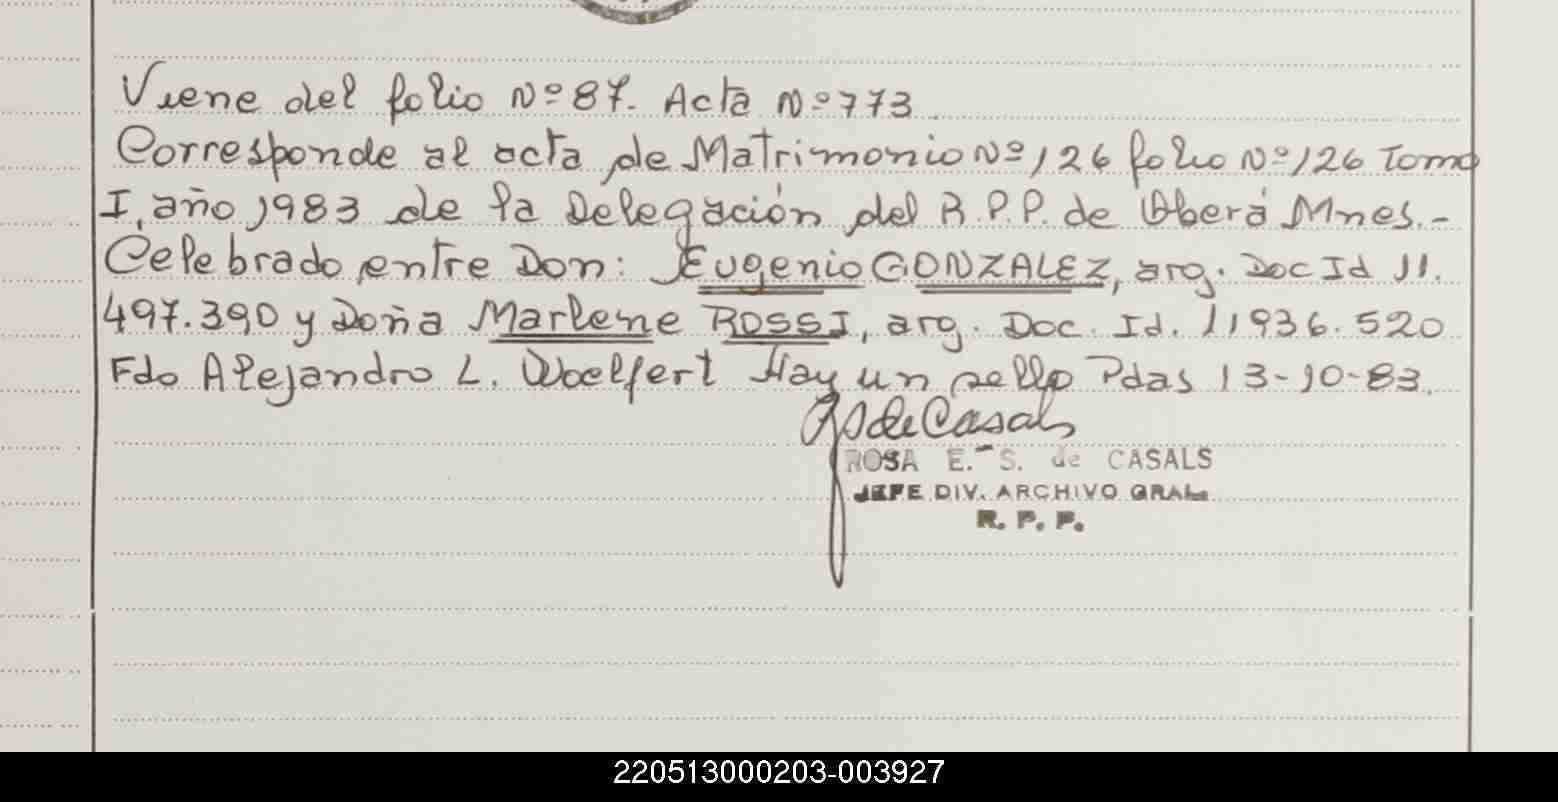 Viene del folio Nº 87. Acta Nº 773
Corresponde al acta de Matrimonio Nº 126 folio Nº 126 Tomo
I, año 1983 de la Delegación del R.P.P. de Oberá Mnes.-
Celebrado entre Don: Eugenio GONZALEZ, arg. Doc Id 11.
497.390 y Doña Marlene ROSSI, arg. Doc. Id. 11936.520
Fdo Alejandro L. Woelfert Hay un sello Pdas 13-10-83.
de Casals
ROSA E. S. de CASALS
JEFE DIV. ARCHIVO GRAL.
R. P. P.
220513000203-003927